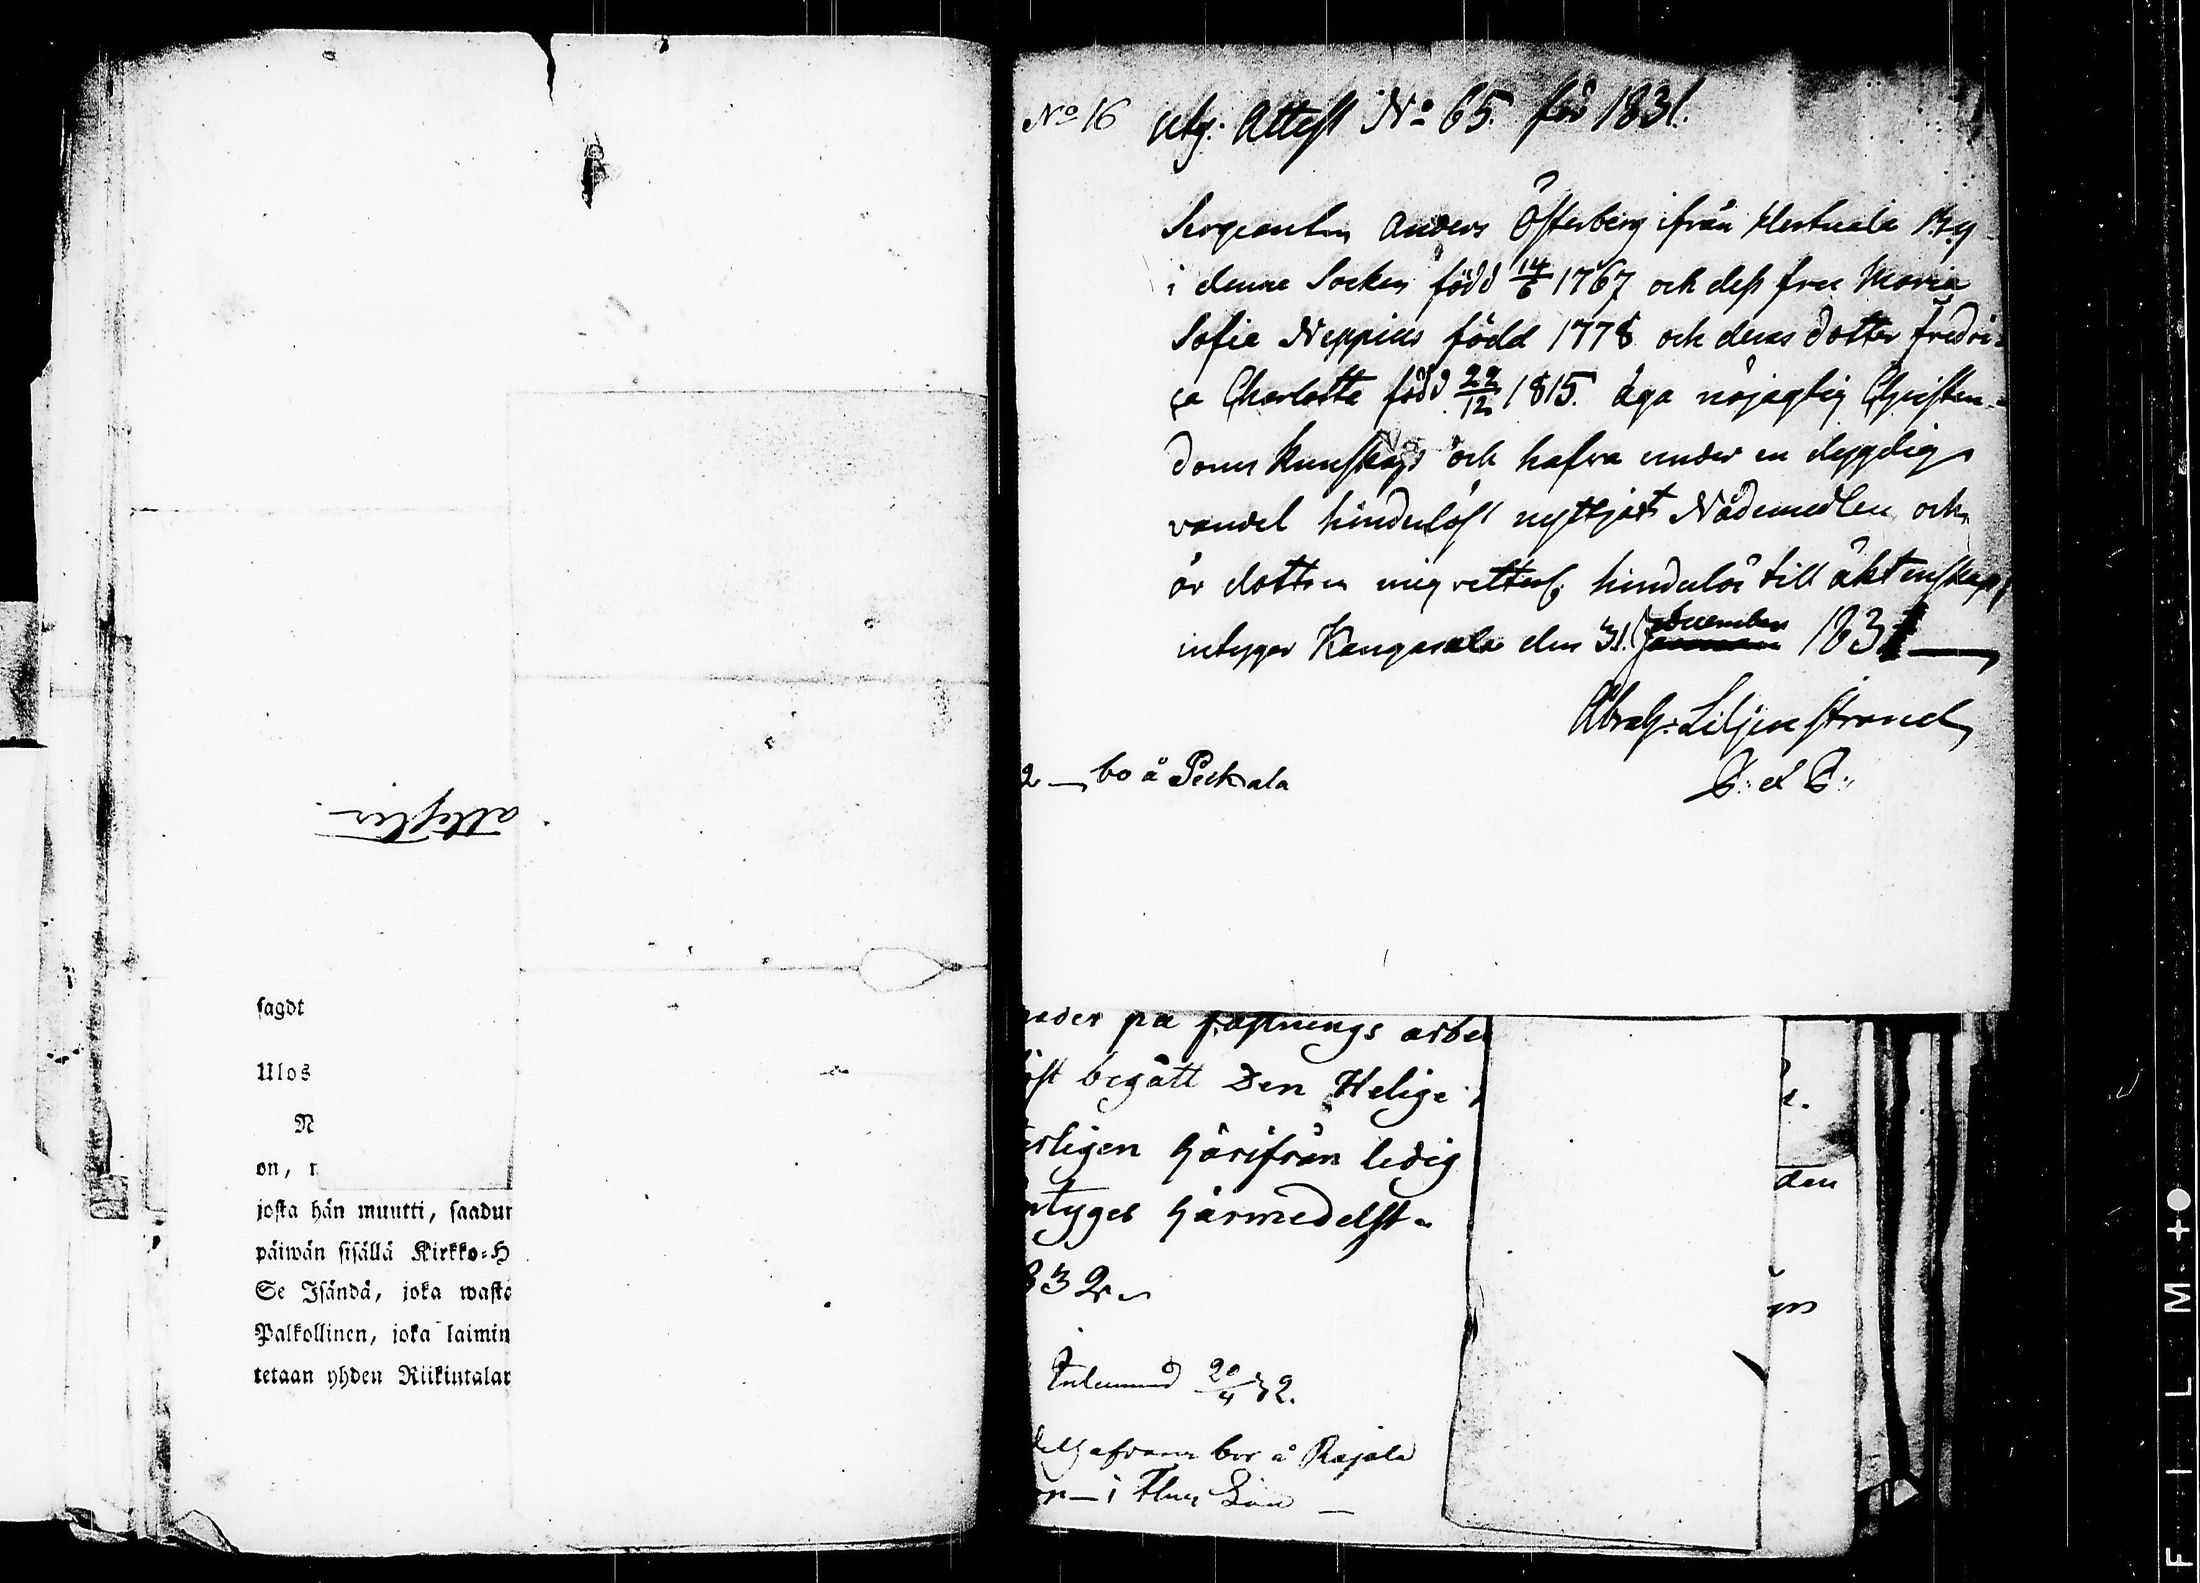 attester
sagdt
Ulos
N
on, r
josta hän muutti, saadur
päiwän sisällä Kirkko-H
Se Isändä, joka wasto
Palkollinen, joka laimin
tetaan yhden Riikintalar
No 16 utg. Attest No 65. för 1831.
Sergeanten Anders Österberg ifrån Hertuala By
i denne Socken född 14/6 1767 och dess fru Maria
Sofia Neppius född 1778 och deras dotter Fredri-
ca Charlotta född 22/12 1815. äga nöjagtig Christen-
doms kunskap och hafva under en dygdig
vandel hinderlöst nyttjat Nådemedlen och
är dottren mig vetterl. hinderlös till äktenskap,
intygar Kangasala den 31. december 1831
Abrah: Liljenstrand
P: et P:
2 — bo å Peckala
nader på fästnings arbe
öst begått Den Helige
erligen härifrån ledig
ntyges härmedelst
832
Inlemnad 20/4 32.
bor å Rajala
i
den